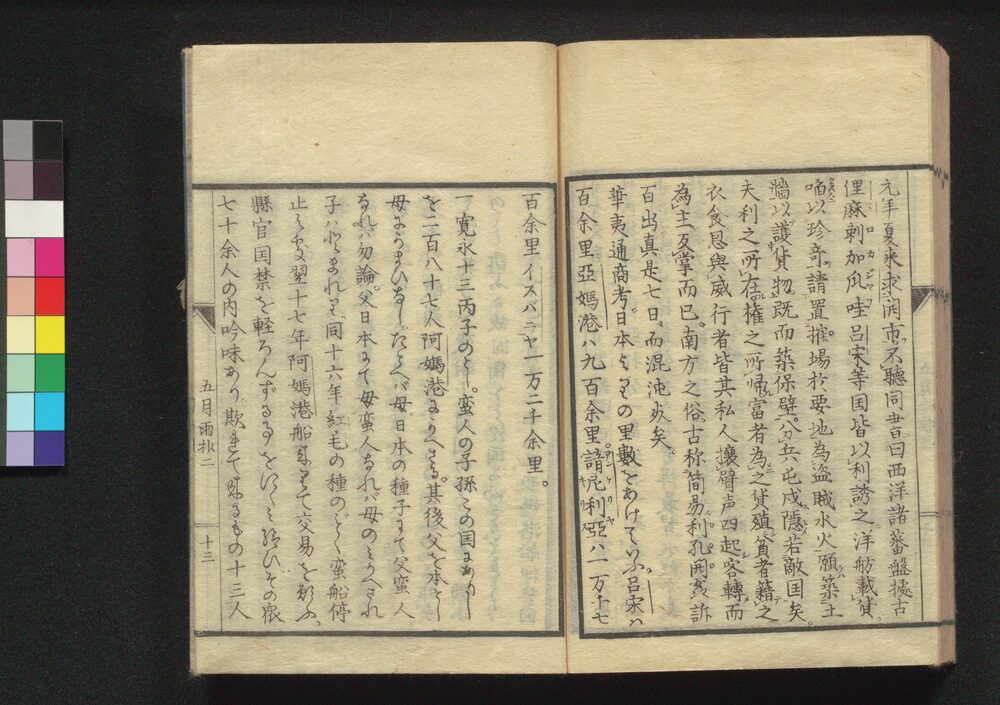 元年夏来求開市不聽同書曰西洋諸蕃盤據古
俚麻刺加爪哇呂宋等国皆以利誘之洋舶載貨
啗以珍奇請置摧場於要地為盗賊水火願築土
墻以護貨物既而築保壁分兵屯戍隱若敵国矣
夫利之所在權之所帰富者為之貨殖貧者籍之
衣食恩與威行者皆其私人攘臂声四起客轉而
為主反掌而已南方之俗古称簡易利孔開訴
百出真是七日而混沌矣
華夷通商考日本よりの里數をあけていふ呂宋ハ
百余里亞媽港ハ九百余里諳尼利亞ハ一万十七
百余里イスパニヤ一万二千余里。
一寛永十三丙子のとし。蛮人の子孫との国にありし
を二百八十七人阿媽港にかへさる。其後父を本とし
母にかまひなし。たとへバ母日本の種子にて父蛮人
なれバ勿論。父日本にて母蛮人なれバ母のミかへされ
子ハとゝまれり。同十六年紅毛の種のごとく蛮船停
止之処翌十七年阿媽港船来りて交易を願ふ。
縣官国禁を軽ろんずる事をにくミ給ひその衆
七十余人の内吟味あり。欺れて来るもの十三人
五月雨抄二
十三